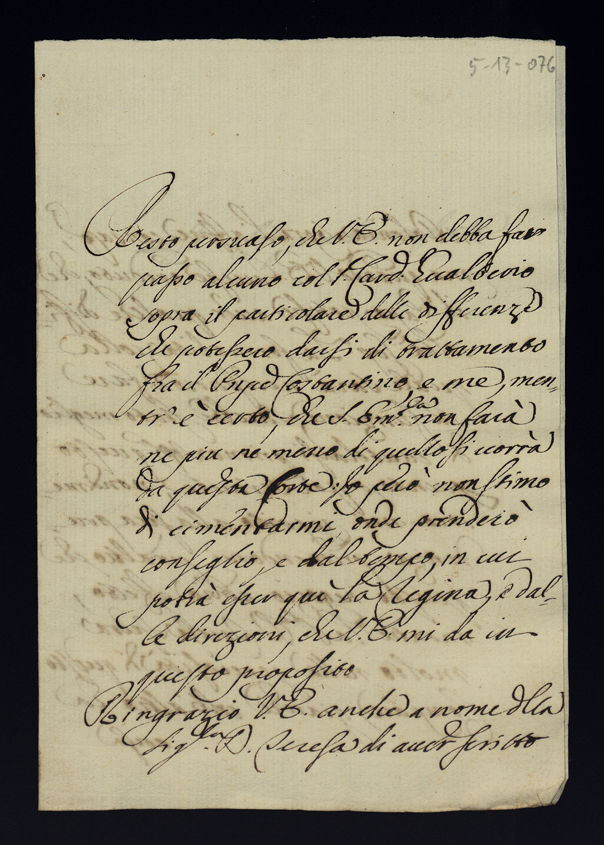 5-13-076
Resto persuaso, che V. E. non debba far
passo alcuno col Card.
sopra il particolare delle differenze
che potessero darsi di trattamento
fra il Costantino, e me, men-
tr' è certo, che S. Em.za non farà
ne piu ne meno di quello si vorrà
da questa Corte: Io però non stimo
di cimentarmi, onde prenderò
conseglio, e dal tempo, in cui
potrà esser quì la Regina, e dal-
le direzioni, che V. E. mi da in
questo proposito
Ringrazio V. E. anche a nome della
Sig.ra D. Teresa di aver scritto